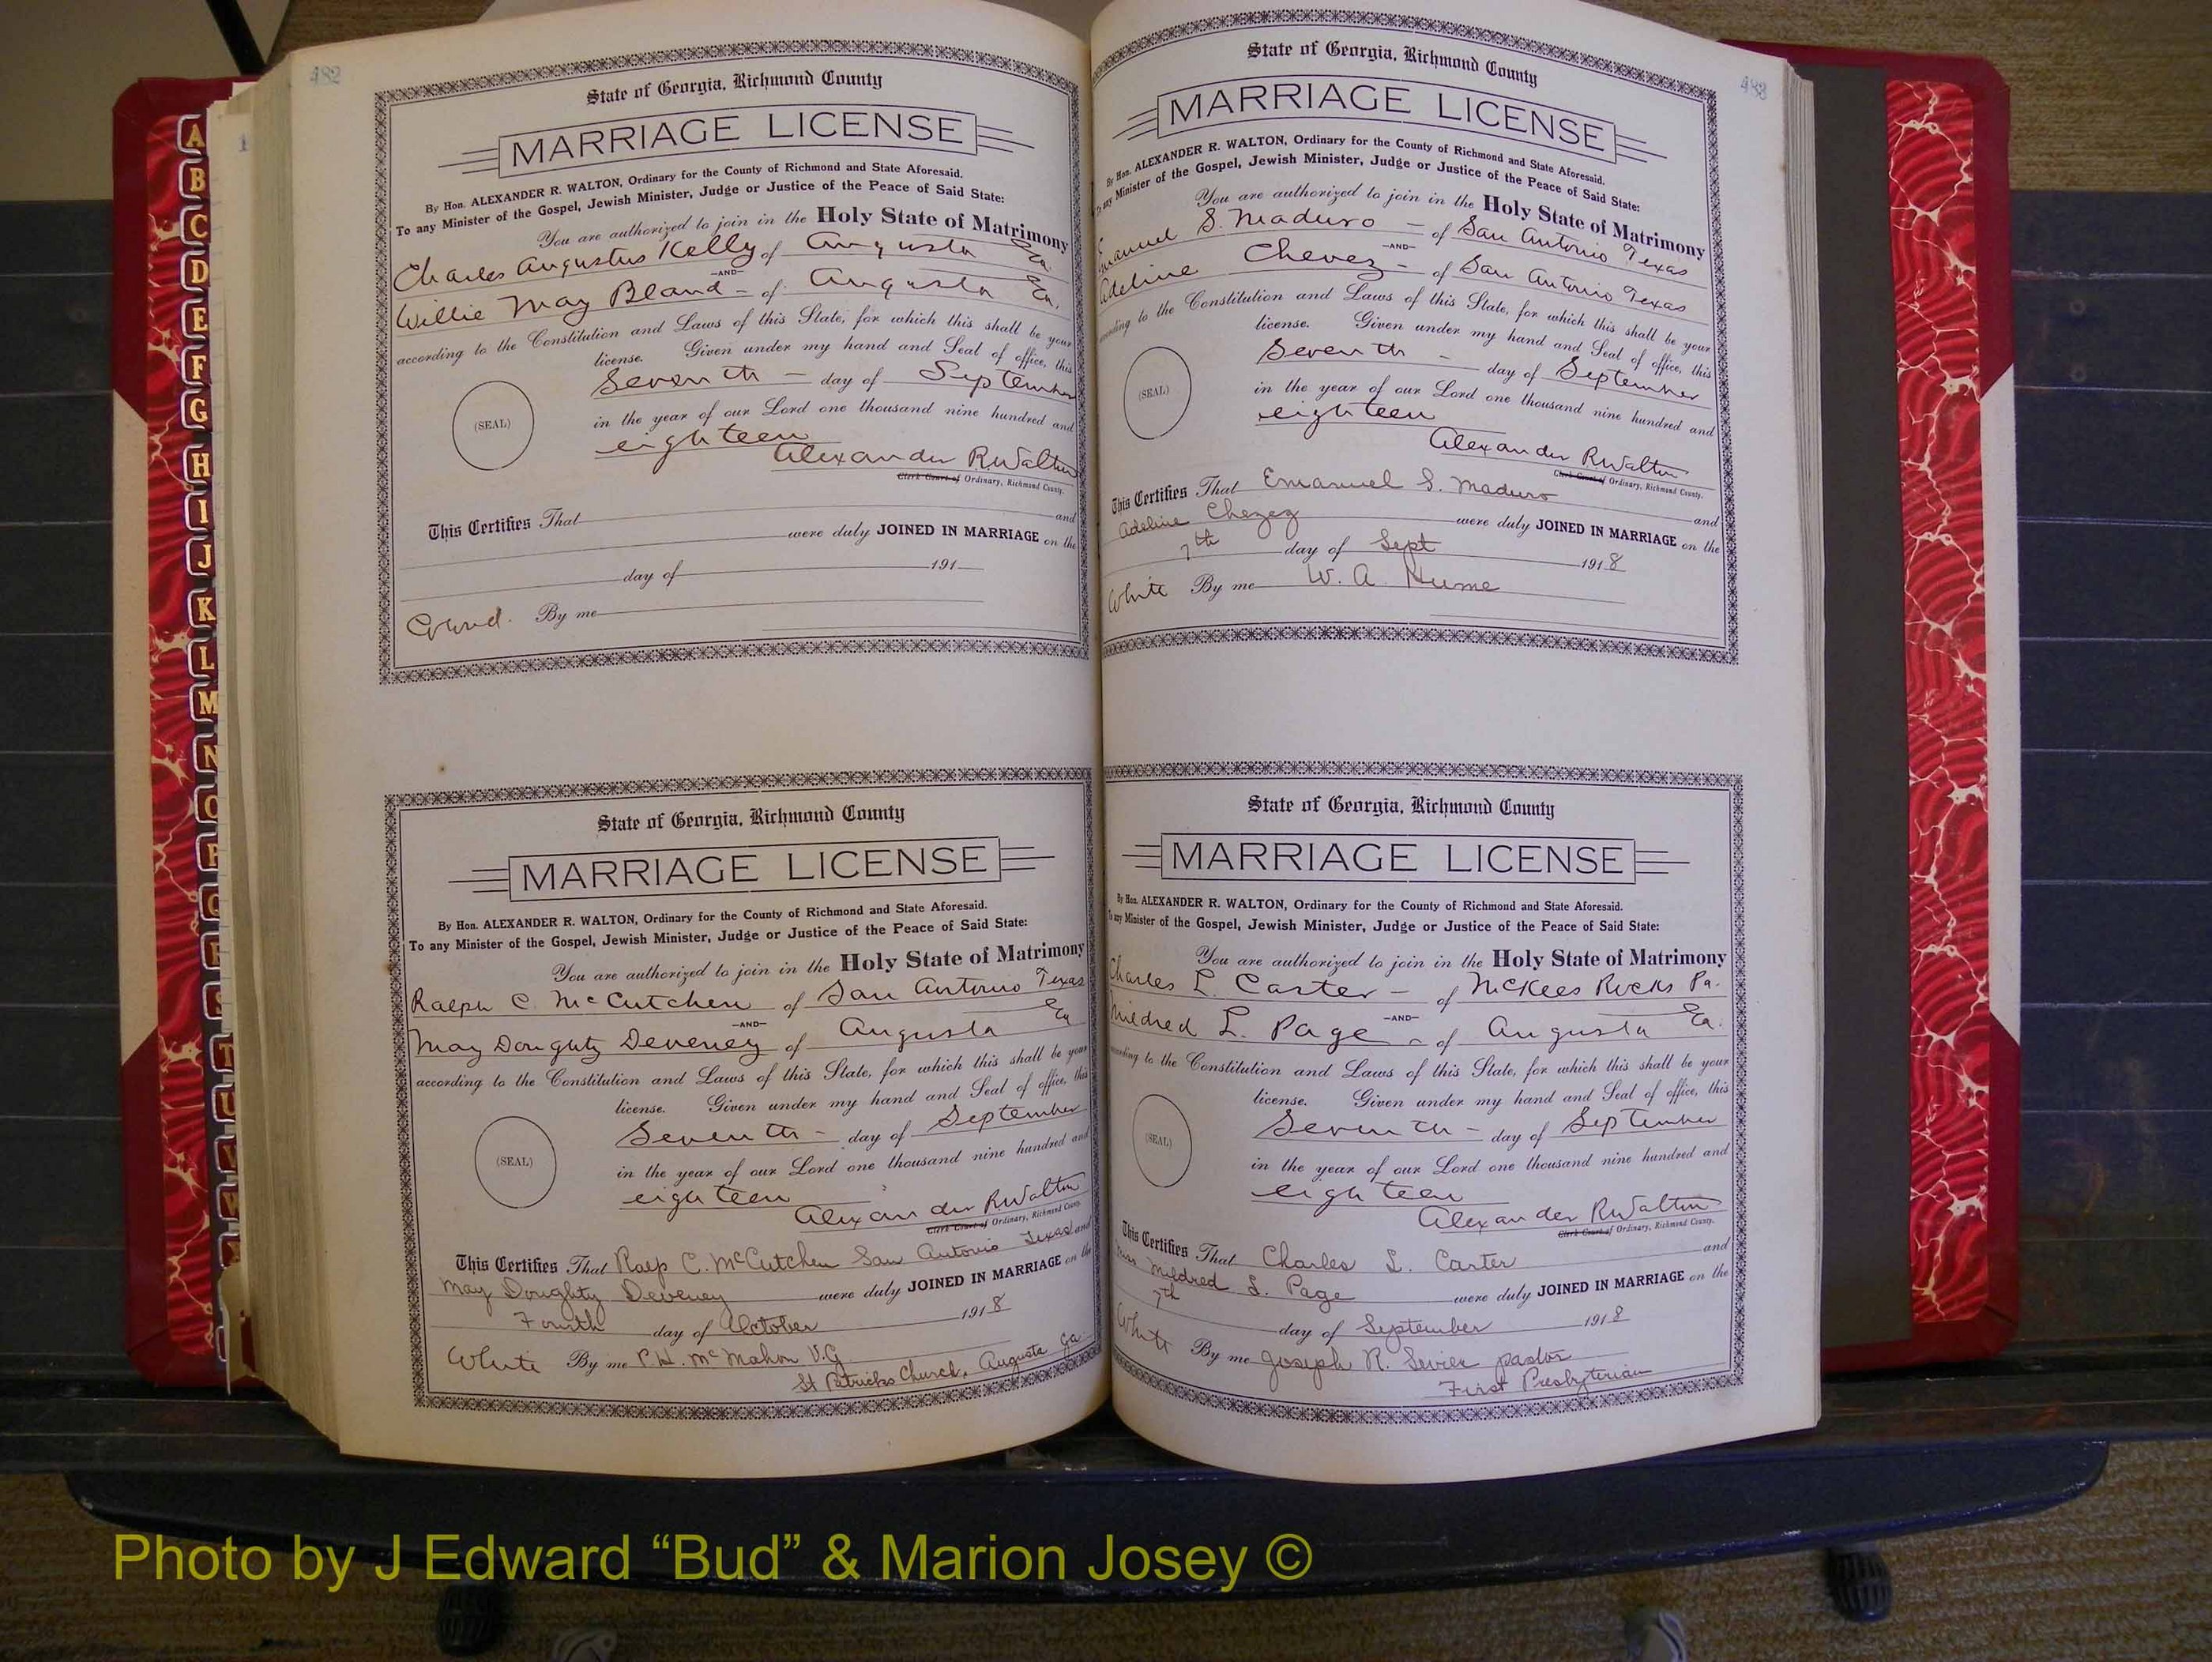 482
State of Georgia, Richmond County
MARRIAGE LICENSE
By Hon. ALEXANDER R. WALTON, Ordinary for the County of Richmond and State Aforesaid.
To any Minister of the Gospel, Jewish Minister, Judge or Justice of the Peace of Said State:
You are authorized to join in the Holy State of Matrimony
Charles Augustus Kelly of Augusta Ga.
—AND—
Willie May Bland - of Augusta Ga.
according to the Constitution and Laws of this State, for which this shall be your
license. Given under my hand and Seal of office, this
Seventh - day of September
(SEAL)
in the year of our Lord one thousand nine hundred and
eighteen
Alexander R Walton
Clerk Court of Ordinary, Richmond County.
This Certifies That and
were duly JOINED IN MARRIAGE on the
day of 191
Colored. By me
State of Georgia, Richmond County
MARRIAGE LICENSE
By Hon. ALEXANDER R. WALTON, Ordinary for the County of Richmond and State Aforesaid.
To any Minister of the Gospel, Jewish Minister, Judge or Justice of the Peace of Said State:
You are authorized to join in the Holy State of Matrimony
Ralph C. McCutchen of San Antonio Texas
—AND—
May Doughty Deveney of Augusta Ga
according to the Constitution and Laws of this State, for which this shall be your
license. Given under my hand and Seal of office, this
Seventh - day of September
(SEAL)
in the year of our Lord one thousand nine hundred and
eighteen
Alexander R Walton
Clerk Court of Ordinary, Richmond County.
This Certifies That Ralp C. McCutchen San Antonio Texas and
May Doughty Deveney were duly JOINED IN MARRIAGE on the
Fourth day of October 1918
White By me P. H. McMahon V.G
St Patricks Church, Augusta Ga.
483
State of Georgia, Richmond County
MARRIAGE LICENSE
By Hon. ALEXANDER R. WALTON, Ordinary for the County of Richmond and State Aforesaid.
To any Minister of the Gospel, Jewish Minister, Judge or Justice of the Peace of Said State:
You are authorized to join in the Holy State of Matrimony
Emanuel S. Maduro - of San Antonio Texas
—AND—
Adeline Chevez - of San Antonio Texas
according to the Constitution and Laws of this State, for which this shall be your
license. Given under my hand and Seal of office, this
Seventh - day of September
(SEAL)
in the year of our Lord one thousand nine hundred and
eighteen
Alexander R Walton
Clerk Court of Ordinary, Richmond County.
This Certifies That Emanuel S. Maduro and
Adeline Chezez were duly JOINED IN MARRIAGE on the
7th day of Sept 1918
White By me W. A. Hume
State of Georgia, Richmond County
MARRIAGE LICENSE
By Hon. ALEXANDER R. WALTON, Ordinary for the County of Richmond and State Aforesaid.
To any Minister of the Gospel, Jewish Minister, Judge or Justice of the Peace of Said State:
You are authorized to join in the Holy State of Matrimony
Charles L. Carter - of McKees Rocks Pa.
—AND—
Mildred L. Page - of Augusta Ga.
according to the Constitution and Laws of this State, for which this shall be your
license. Given under my hand and Seal of office, this
Seventh - day of September
(SEAL)
in the year of our Lord one thousand nine hundred and
eighteen
Alexander R Walton
Clerk Court of Ordinary, Richmond County.
This Certifies That Charles L. Carter and
Miss Mildred L. Page were duly JOINED IN MARRIAGE on the
7th day of September 1918
White By me Joseph R. Sevier pastor
First Presbyterian
A
B
C
D
E
F
G
H
I
J
K
L
M
N
O
P
Q
R
S
T
U
V
W
Photo by J Edward “Bud” & Marion Josey ©